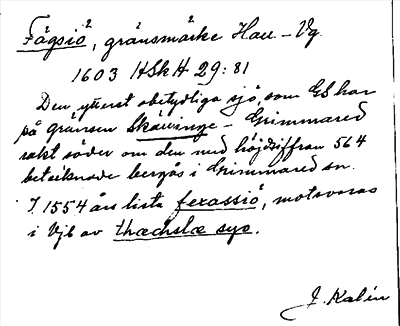 Fågsiö, gränsmärke Hall. - Vg
1603 HSkH 29:81
Den ytterst obetydliga sjö, som GS har
på gränsen Skällinge - Grimmared
rakt söder om den med höjdsiffran 564
betecknade bergås i Grimmared sn.
I 1554 års lista fexassiö, motsvaras
i Vjb av thæchslæ syo.
J. Kalén